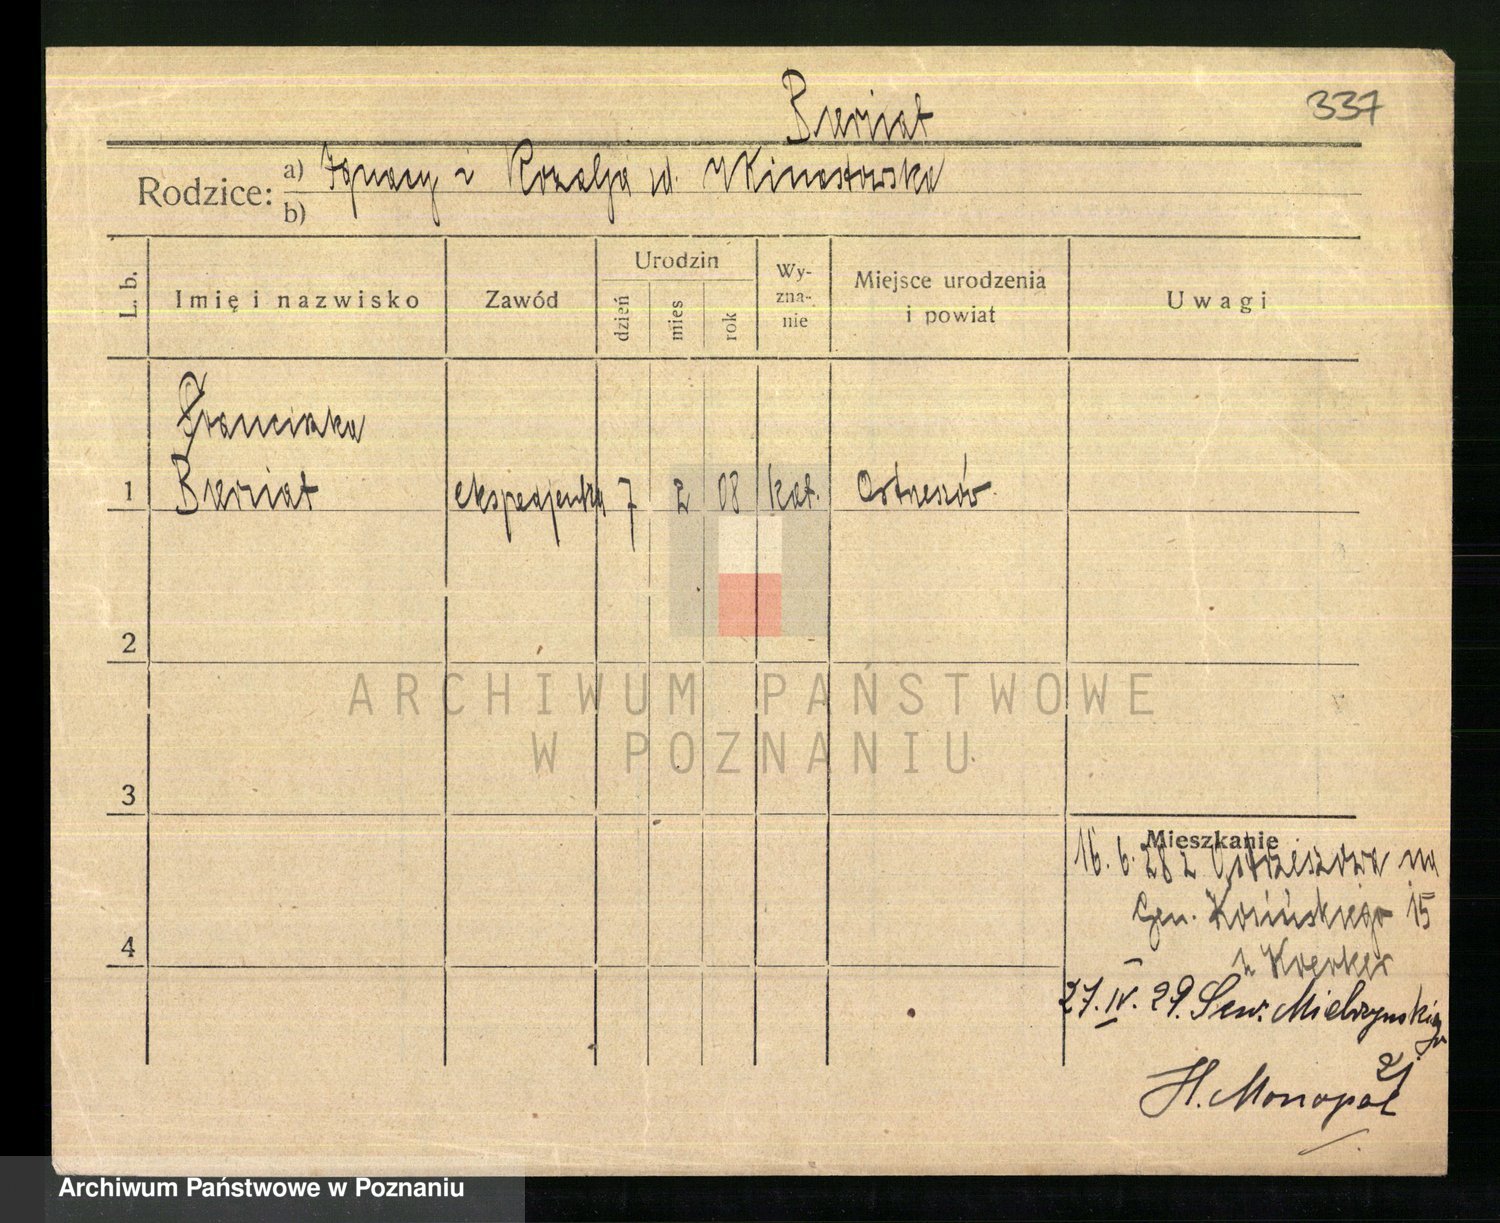 337
Bieniat
Rodzice: a) Ignacy i Rozalja ud.
b)
L. b. Imię i nazwisko Zawód Urodzin dzień mies rok Wyznanie Miejsce urodzenia i powiat Uwagi
Franciszka
1 Bieniat ekspedjentka 7 2 08 kat. Ostrzeszów
2
ARCHIWUM PAŃSTWOWE
W POZNANIU
3
Mieszkanie
16. 6. 28 z Ostrzeszowa na
Gen. Kosińskiego 15
4
27. IV. 29. Sew. Mielżyńskiego
21
H. Monopol
Archiwum Państwowe w Poznaniu